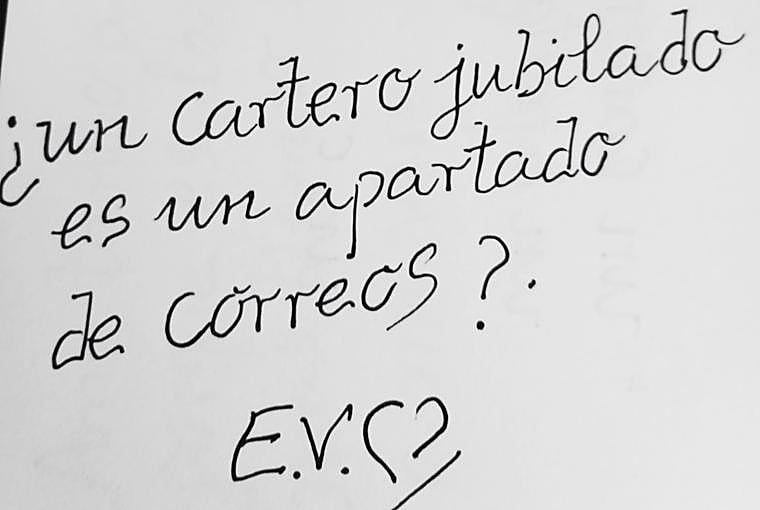 ¿un cartero jubilado
es un apartado
de correos?.
E.V.